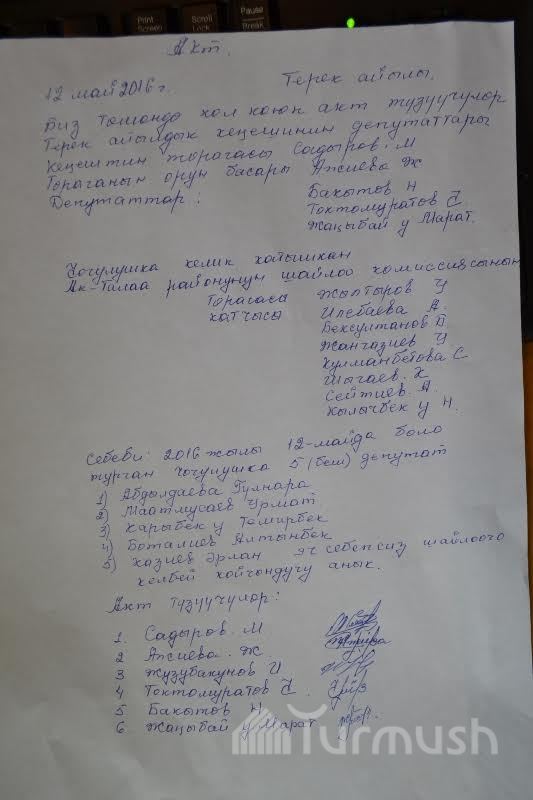 Print Screen
Scroll Lock
Pause Break
Акт.
12 май 2016 г. Терек айылы.
Биз төмөндө кол коюп акт түзүүчүлөр
Терек айылдык кеңешинин депутаттары
Кеңештин төрагасы Садыров. М
Төраганын орун басары Апсиева Ж
Депутаттар: Бакытов Н
Токтомуратов Ч.
Жаңыбай у Марат.
Чогулушка келип катышкан
Ак-Талаа районунун шайлоо комиссиясынын
Төрагасы Жылтыров У
Катчысы Илебаева А.
Бексултанов Б.
Жанчазиев У.
Кулманбетова С
Шычаев. К
Сейтиев. А.
Кылычбек у Н.
Себеби: 2016-жылы 12-майда боло
турган чогулушка 5 (беш) депутат
1) Абдылдаева Гулнара
2) Маатмусаев Урмат
3) Карыбек у Темирбек
4) Боталиев Алтынбек
5) Казиев Эрлан эч себепсиз шайлоого
келбей койгондугу анык.
Акт түзүүчүлөр:
1. Садыров. М
2 Апсиева. Ж.
3 Жузубакунов И
4 Токтомуратов Ч.
5 Бакытов Н
6. Жаңыбай у Марат
Turmush